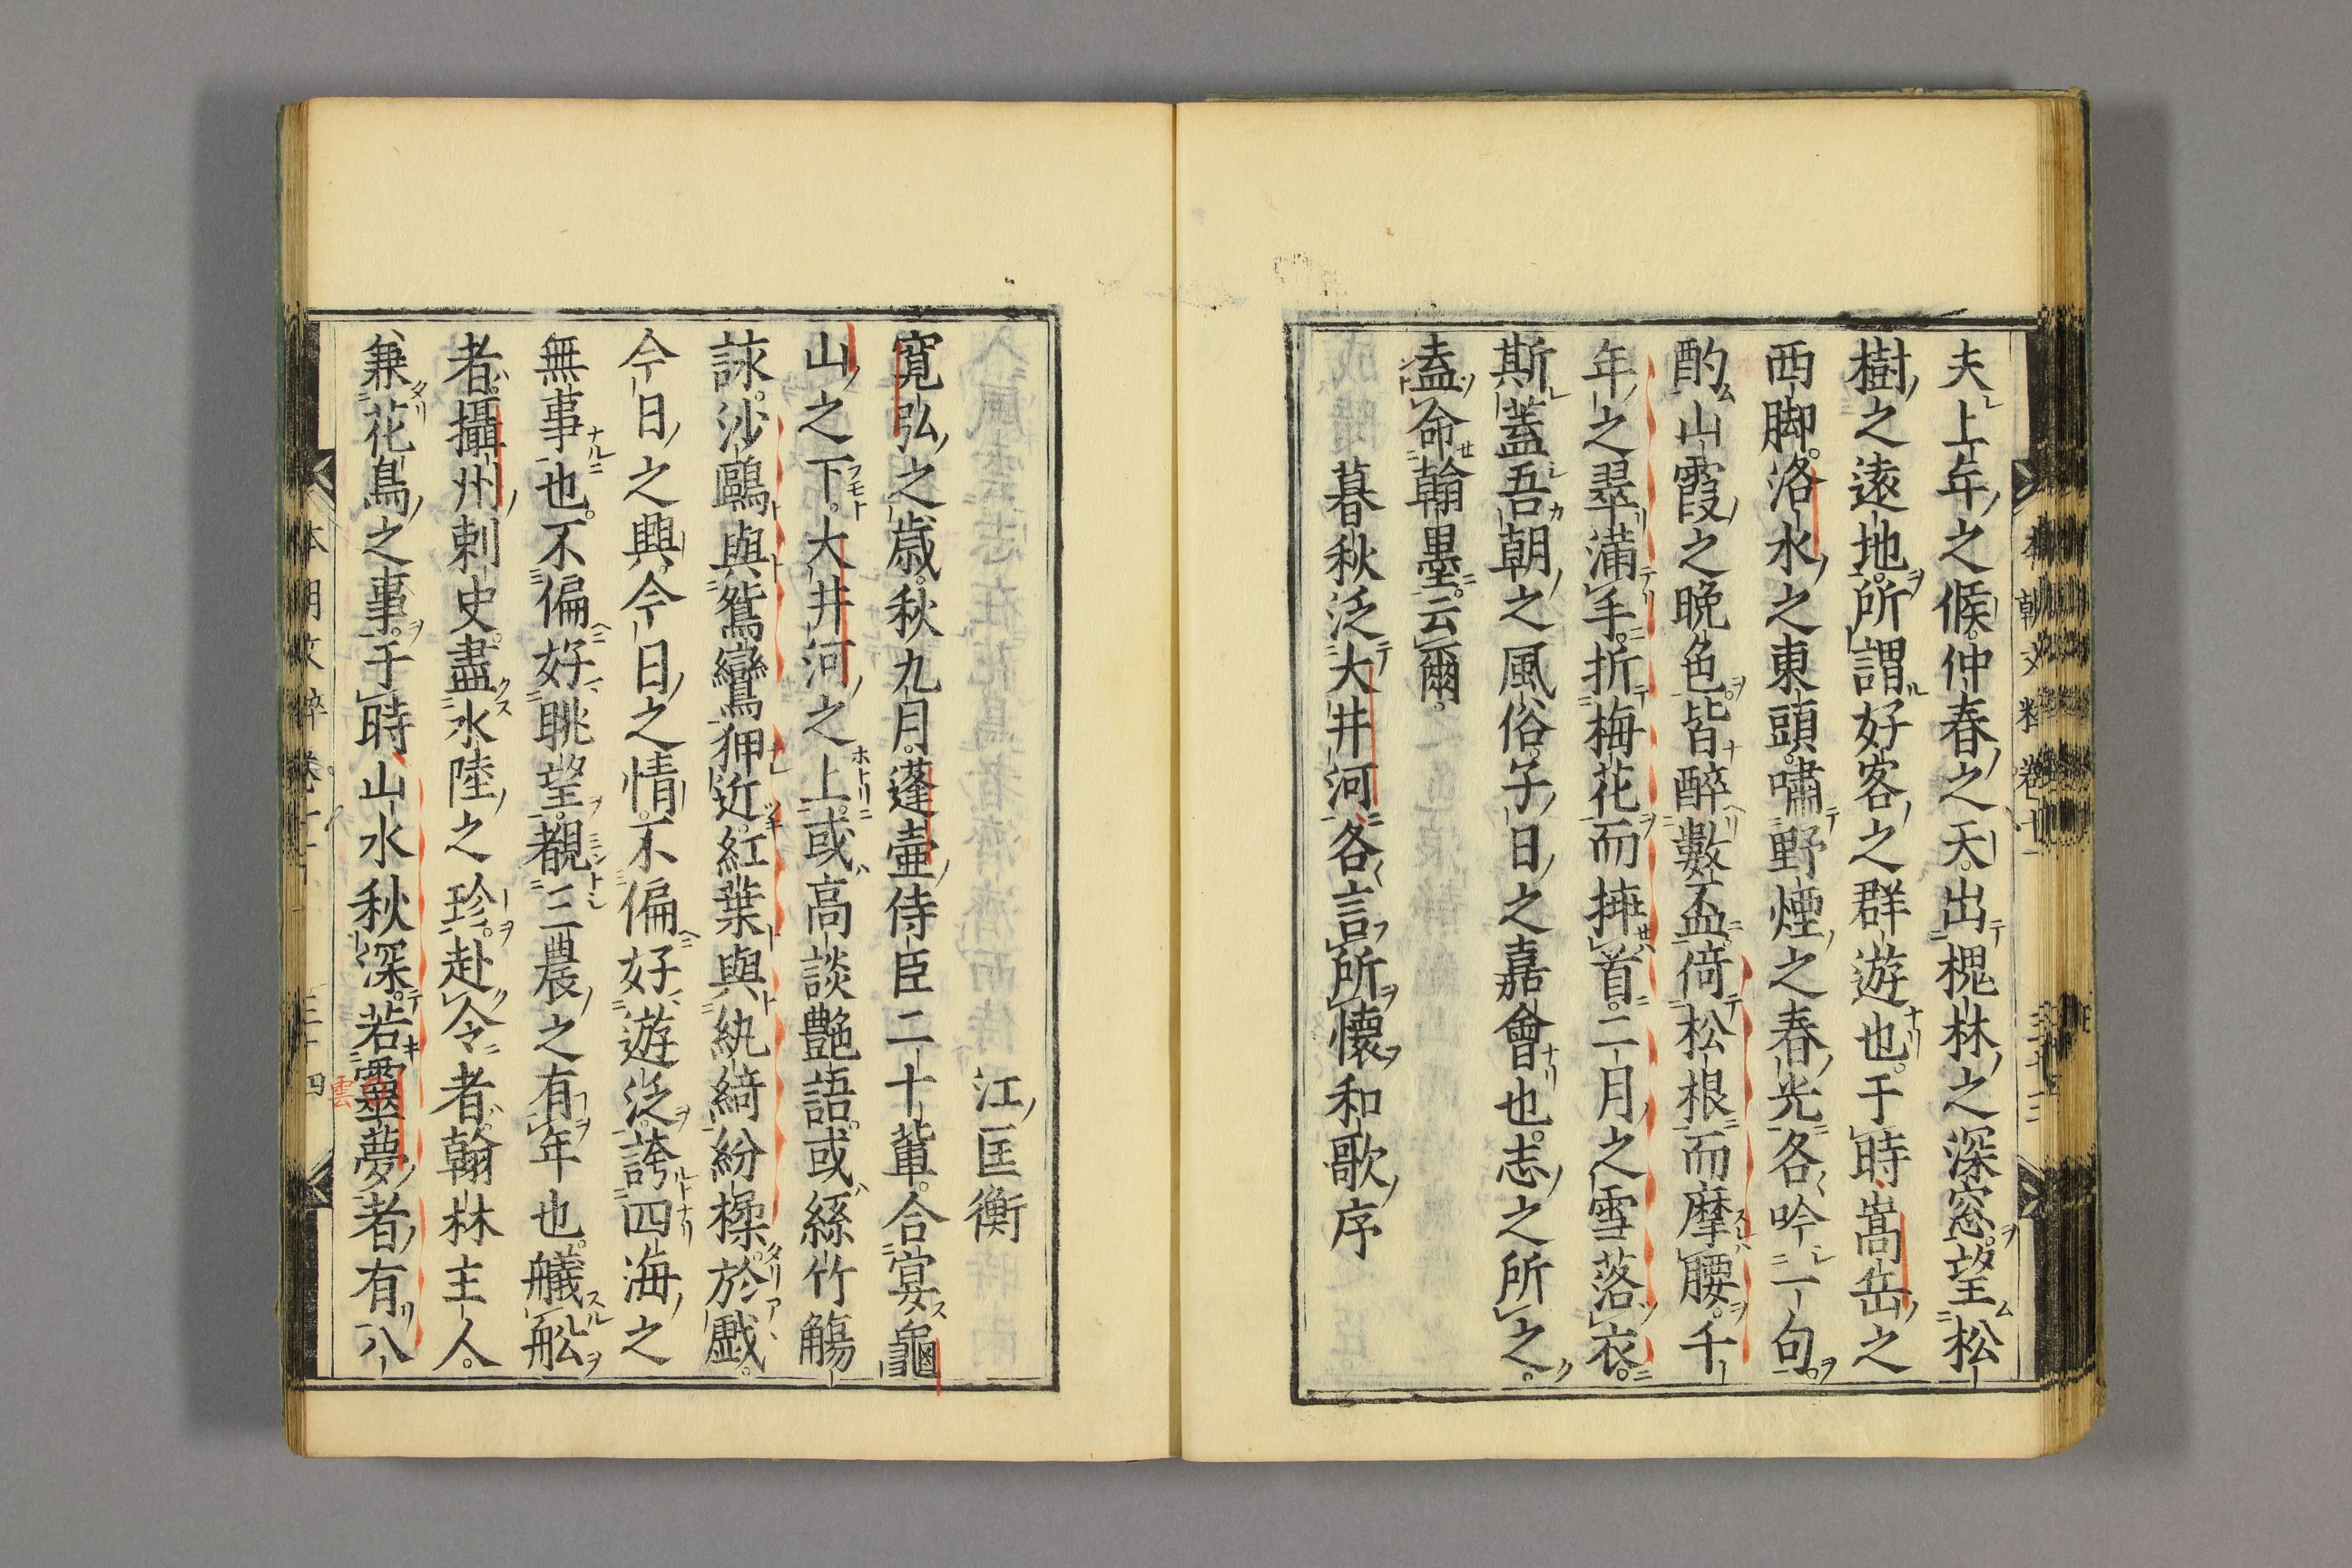 夫上年之候。仲春之天。出槐林之深窓。望松
樹之遠地。所謂好客之群遊也。于時嵩岳之
西脚。洛水之東頭。嘯野煙之春光。各吟一句。
酌山霞之晩色。皆醉數盃。倚松根而摩腰。千
年之翠滿手。折梅花而挿首。二月之雪落衣。
斯蓋吾朝之風俗。子日之嘉會也。志之所之。
盍命翰墨。云爾。
暮秋泛大井河各言所懷和歌序
江匡衡
寛弘之歳。秋九月。蓬壷侍臣二十輩。合宴龜
山之下。大井河之上。或高談艶語。或絲竹觴
詠。沙鷗與鴛鸞狎近。紅葉與紈綺紛楺。於戲。
今日之興。今日之情。不偏好遊泛。誇四海之
無事也。不偏好眺望。覩三農之有年也。艤舩
者。攝州刺史。盡水陸之珍。赴令者。翰林主人。
兼花鳥之事。于時山水秋深。若靈夢者。有八
雲
本朝文粹卷十一
三十四